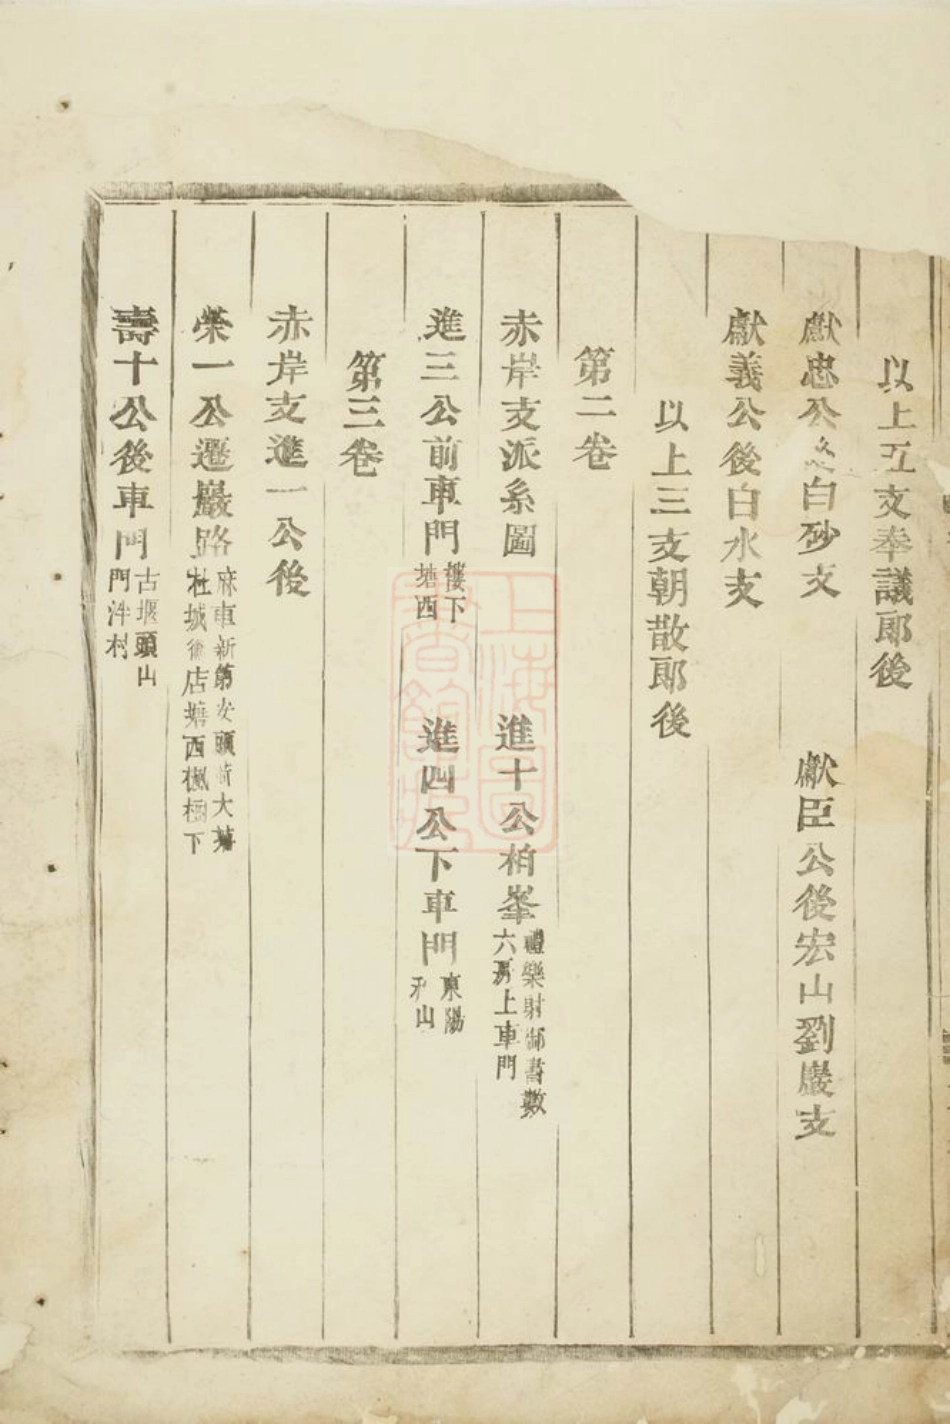 以上五支奉議郎後
獻忠公後白砂支 獻臣公後宏山劉巖支
獻義公後白水支
以上三支朝散郎後
第二卷
赤岸支派系圖 進十公柏峯禮樂射御書數六房上車門
進三公前車門樓下塘西 進四公下車門東陽禾山
第三卷
赤岸支進一公後
榮一公遷巖路麻車新第安頭前大 杜城後店塘西楓下
壽十公後車門古堰頭山門泮村
上海圖書館藏